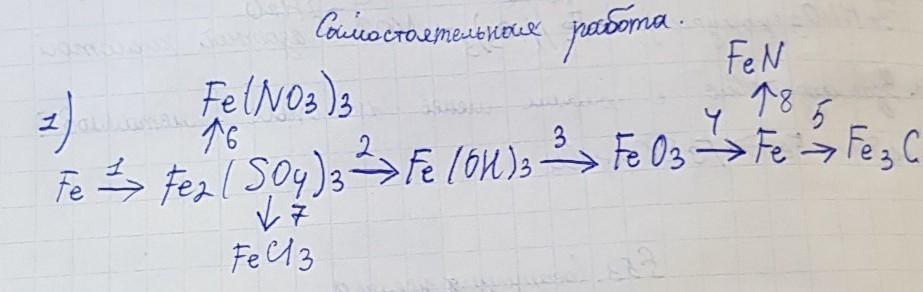 Самостоятельная работа.
FeN
Fe(NO3)3
1)
↑6 ↑8
Fe 1→ Fe2(SO4)3 2→ Fe(OH)3 3→ FeO3 4→ Fe 5→ Fe3C
↓7
FeCl3